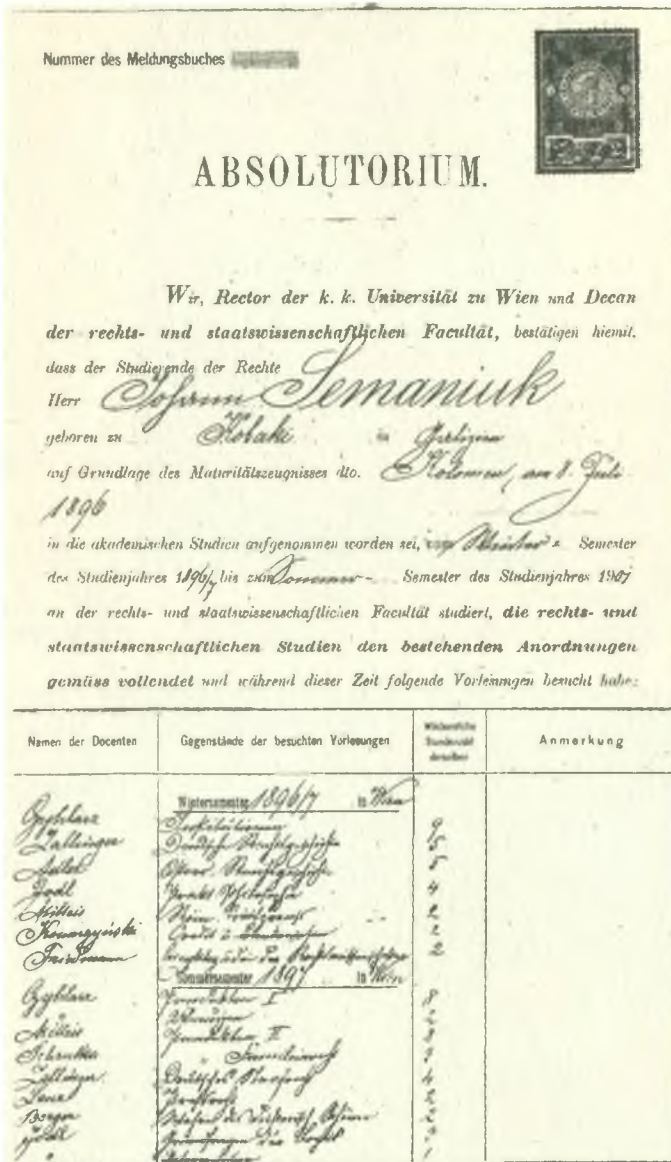 Nummer des Meldungsbuches
ABSOLUTORIUM.
Wir, Rector der k. k. Universität zu Wien und Decan
der rechts- und staatswissenschaftlichen Facultät, bestätigen hiemit,
dass der Studierende der Rechte
Herr Johann Semaniuk
geboren zu Kobaki in Galizien
auf Grundlage des Maturitätszeugnisses dto. Kolomea, am 8. Juli
1896
in die akademischen Studien aufgenommen worden sei, Winter- Semester
des Studienjahres 1896/7 bis zum Sommer- Semester des Studienjahres 1901
an der rechts- und staatswissenschaftlichen Facultät studiert, die rechts- und
staatswissenschaftlichen Studien den bestehenden Anordnungen
gemäss vollendet und während dieser Zeit folgende Vorlesungen besucht habe:
Namen der Docenten Gegenstände der besuchten Vorlesungen Wöchentliche Stundenzahl derselben Anmerkung
Wintersemester 1896/7 in Wien
Czyhlarz Institutionen 9
Zallinger Deutsche Rechtsgeschichte 5
Adler Österr. Rechtsgeschichte 5
Jodl Prakt. Philosophie 4
Mitteis Röm. 2
Komorzyński Credit 2
Friedmann 2
Sommersemester 1897 in Wien
Czyhlarz Pandekten I 8
Mitteis Pandekten II
Schrutka
Zallinger Deutsches 4
Lenz
Berger
Jodl